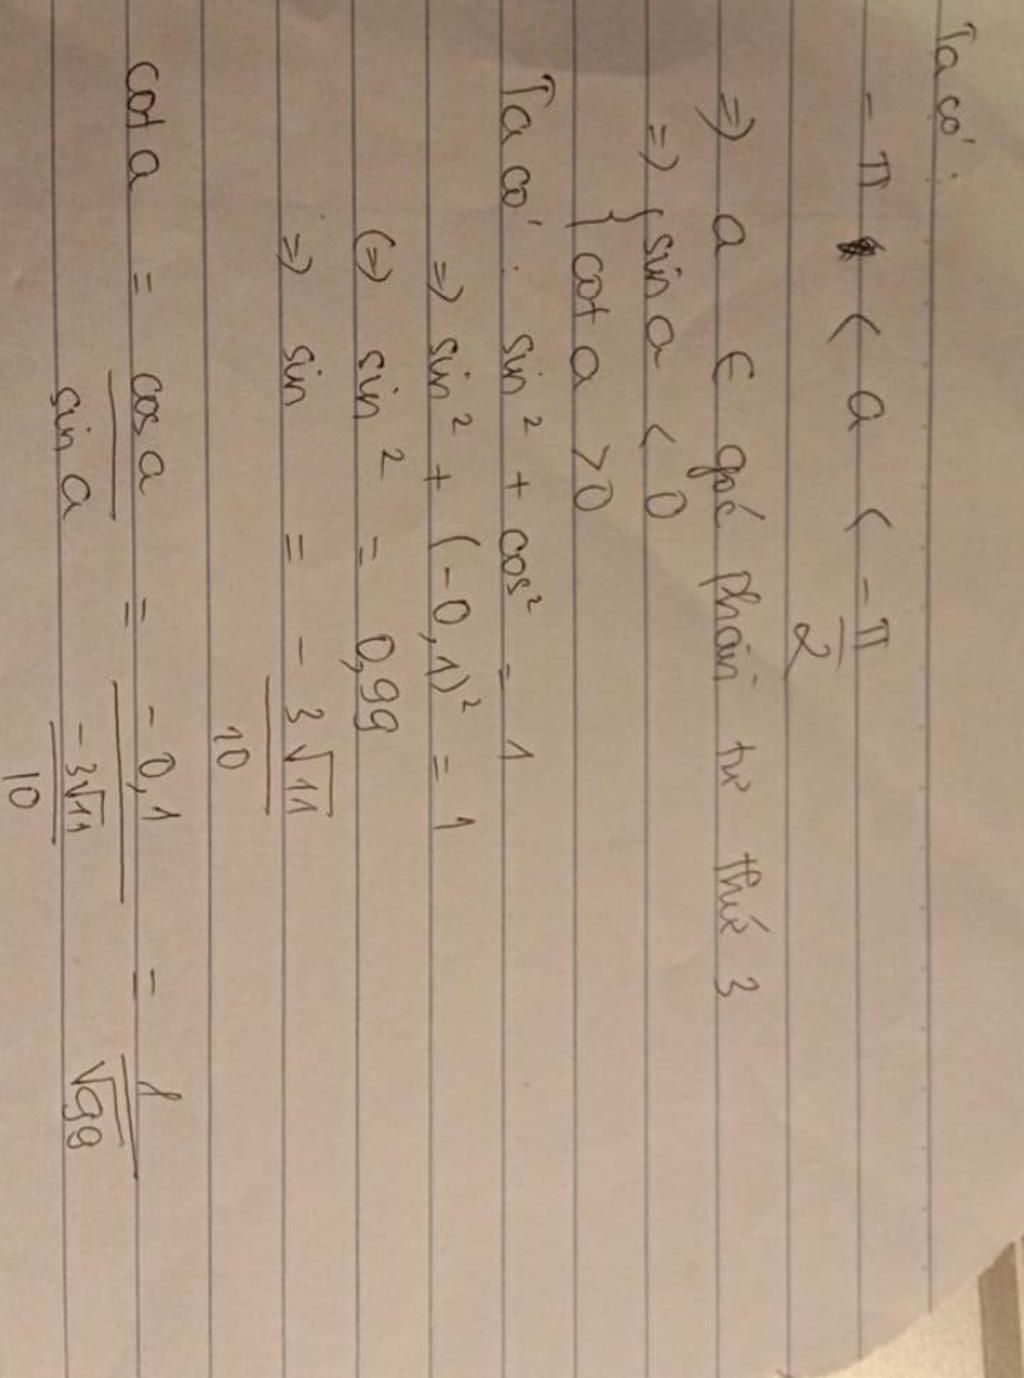 Ta có:
-π < a < -π/2
=> a ∈ góc phần tư thứ 3
=> { sin a < 0
{ cot a > 0
Ta có: sin² + cos² = 1
=> sin² + (-0,1)² = 1
(=> sin² = 0,99
=> sin = - 3√11/10
cot a = cos a/sin a = -0,1/(-3√11/10) = 1/√99